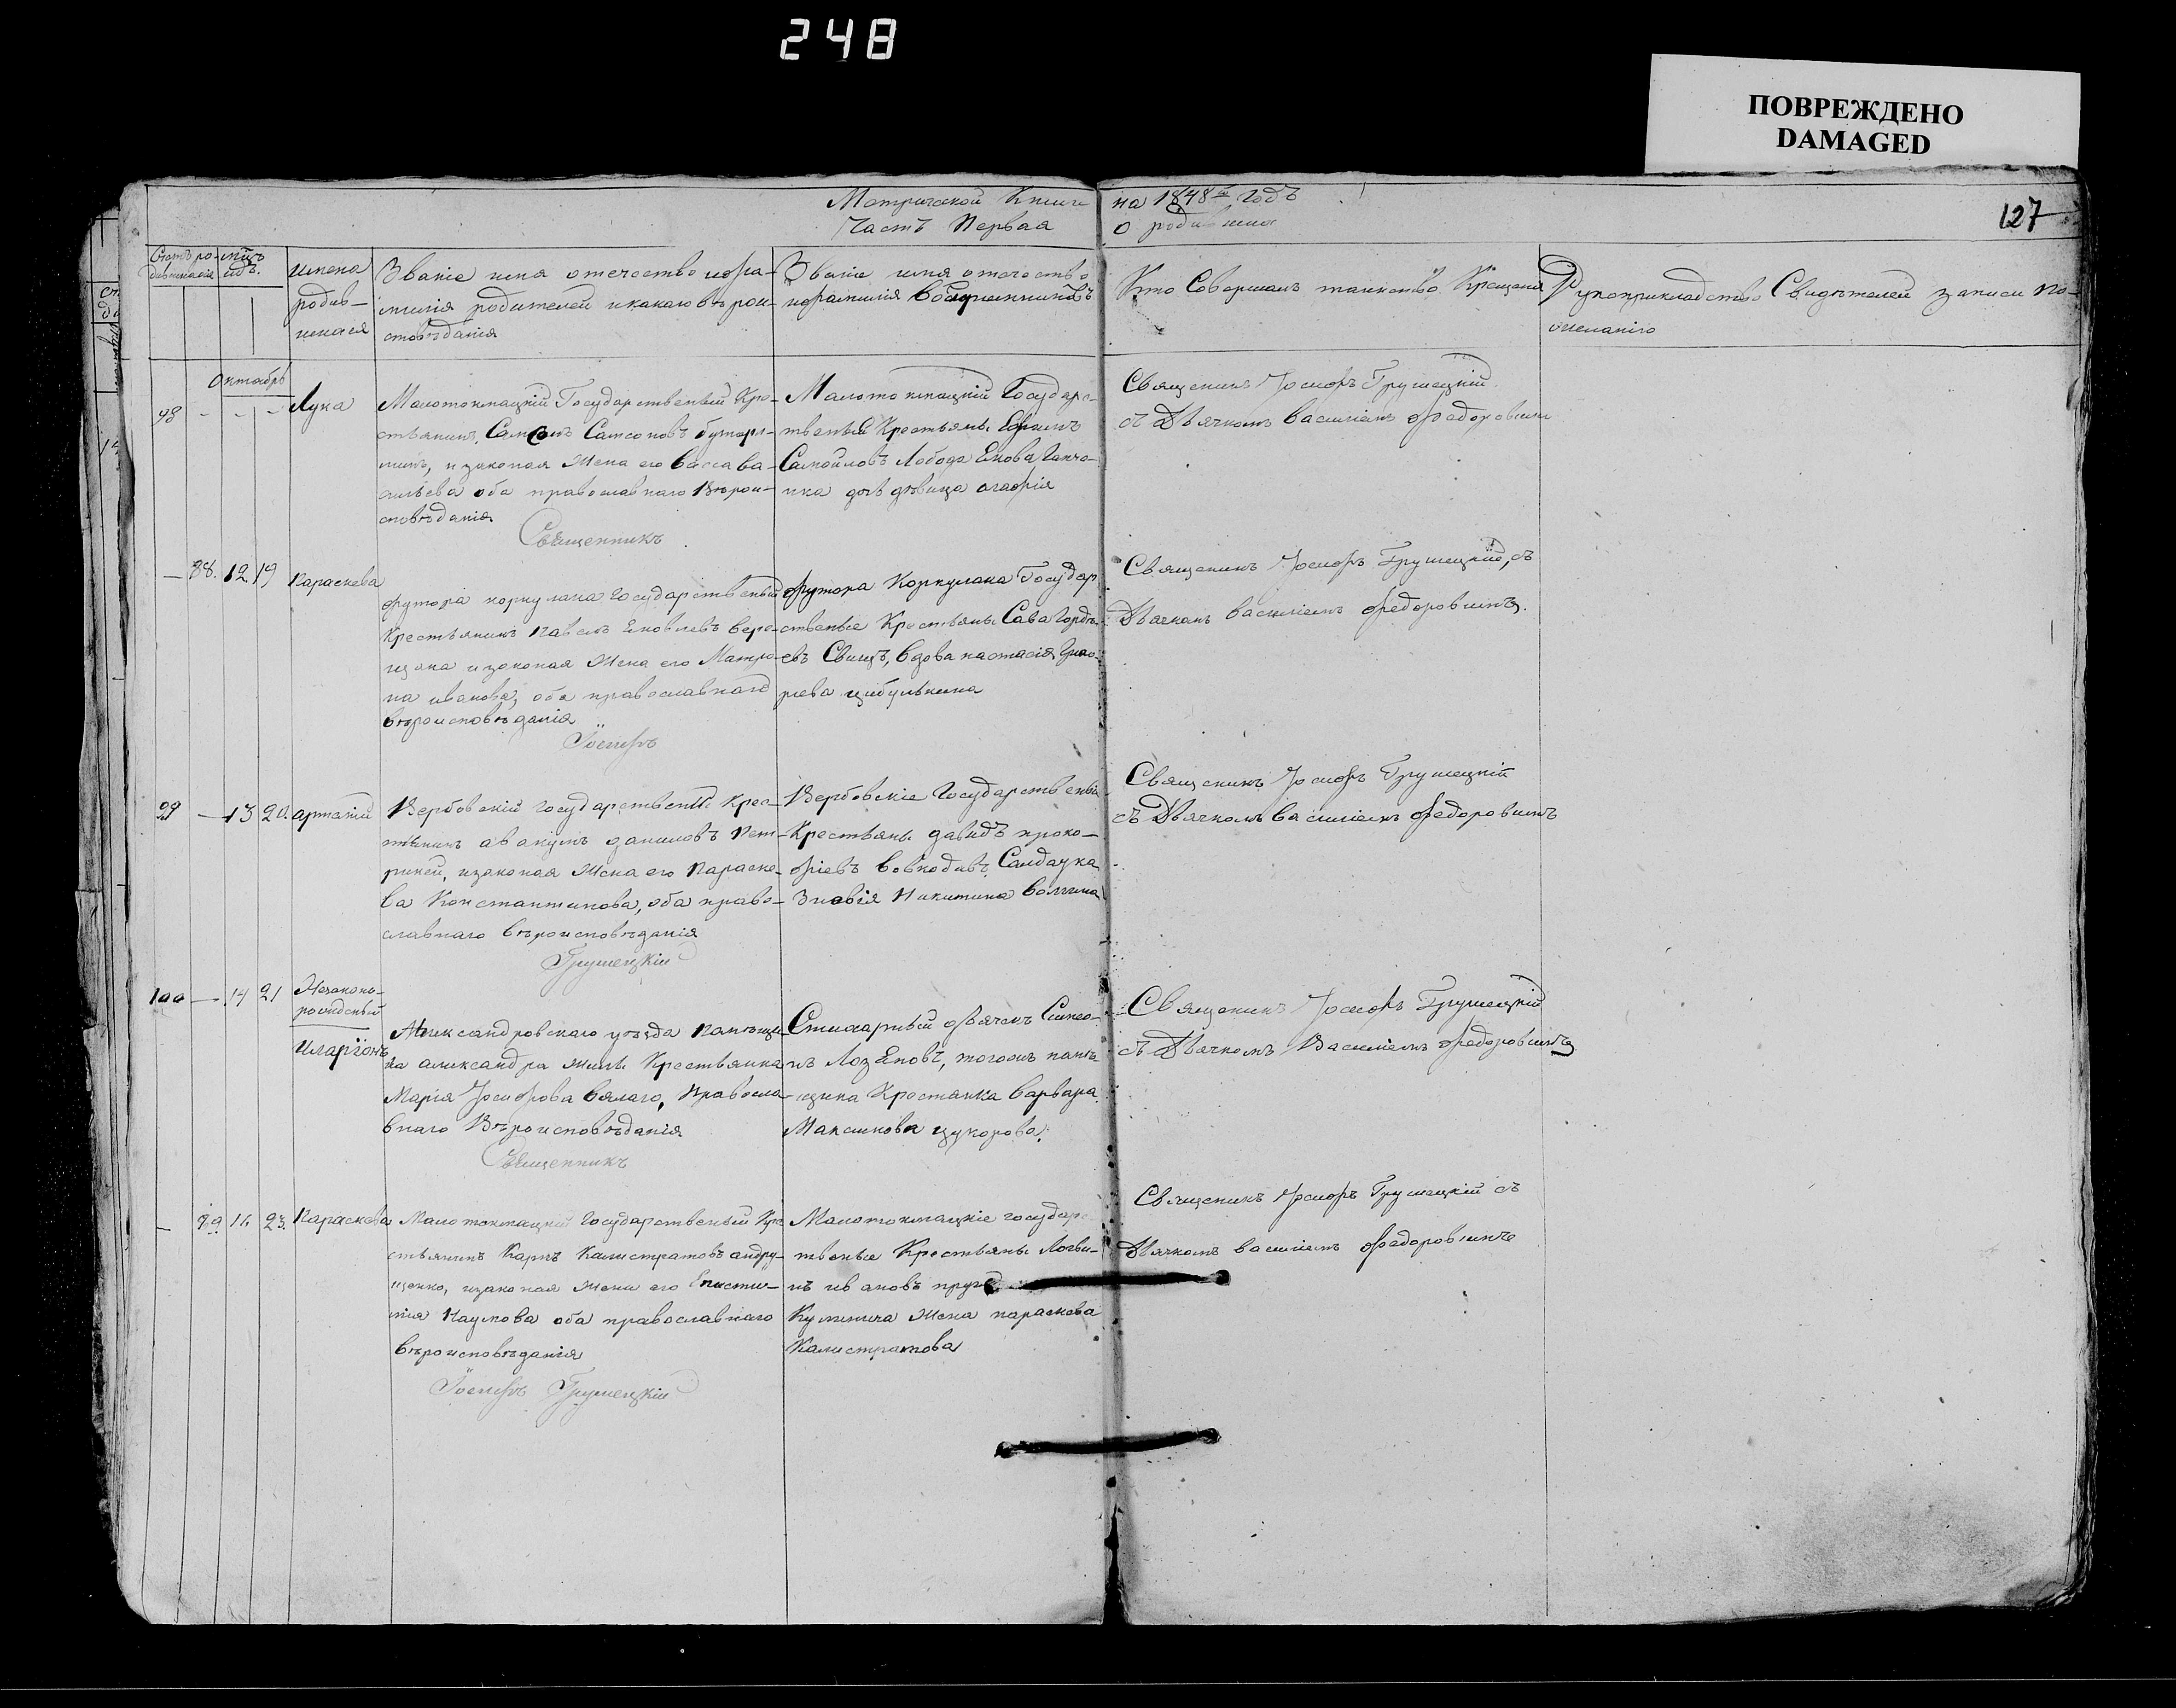 248
ПОВРЕЖДЕНО
DAMAGED
127
Метрической Книги на 1848й годъ
Часть Первая о родившихся
Счотъ ро- мцъ
дившихся идъ.
имена
родив-
шихся
Званіе имя отечество ифа-
милія родителей икакаго верои-
споведанія
Званіе имя отечество
ифамилія восприемниковъ
Кто Совершалъ таинство Крещенія
Рукоприкладство Свидетелей записи по-
желанію
Октябрь
98 - - - Лука
Малотокмацкій Государственый Кре-
стьянинъ, Самсонъ Самсоновъ
изаконая жена его Васса Ва-
сильева оба православнаго Верои-
споведанія
Священникъ
Малотокмацкій Государс-
твеные Крестьяны Ефимъ
Самойловъ Лобода
дочь девица Агафія
Священикъ Іосифъ Грушецкій
съ Дьячкомъ Василіемъ Федоровымъ
— 88. 12 19 Параскева
Футора коркулака государственый
Крестьянинъ Павелъ Яковлевъ Вере-
щака изаконая жена его Матро-
на иванова, оба православнаго
вероисповеданія
Іосифъ
Футора Коркулака Государ
ственые Крестьяны Сава Горде-
евъ Свищъ, вдова настасія Григо-
рева цибулькина
Священикъ Іосифъ Грушецкій, съ
Дьячкомъ Василіемъ Федоровымъ.
99 — 13 20. артемій
Вербовскій государственый крес-
тянинъ авакумъ даниловъ Пет-
риней, изаконая жена его Параске-
ва Константинова, оба право-
славнаго вероисповеданія
Грушецкій
Вербовскіе Государственыи
Крестьяны давидъ проко-
фіевъ вовкодавъ, Салдачка
Зновія Никитина Волчина
Священикъ Іосифъ Грушецкій
съ Дьячкомъ Василіемъ Федоровымъ
100 — 14 21 Незаконо-
рожденый
Иларіонъ
Александровскаго уезда Помещи-
ка александра Крестьянка
Марія Іосифова Бялаго, Правосла-
внаго Вероисповеданія
Священникъ
Стихарный дьячекъ Симео-
нъ Лозеновъ, тогожъ поме-
щика Крестянка Варвара
Максимова цукорова.
Священикъ Іосифъ Грушецкій
съ Дьячкомъ Василіемъ Федоровымъ
— 89 16 23. Параскева
Малотокмацкій Государственый Кре
стьянинъ Карпъ Калистратовъ андру-
щенко, изаконая жена его Епистии-
мія Наумова оба православнаго
вероисповеданія
Іосифъ Грушецкій
Малотокмацкіе государс
твеные Крестьяны Логви-
нъ ивановъ
Кузмича жена параскева
Калистратова
Священикъ Іосифъ Грушецкій съ
Дьячкомъ Василіемъ Федоровымъ